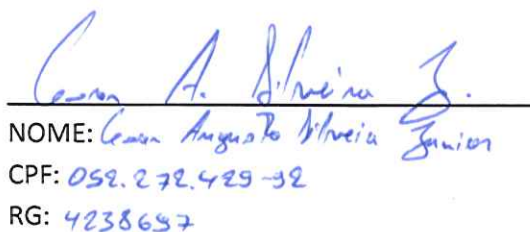 Cesar A. Silveira J.
NOME: Cesar Augusto Silveira Junior
CPF: 052.272.429-92
RG: 4238697